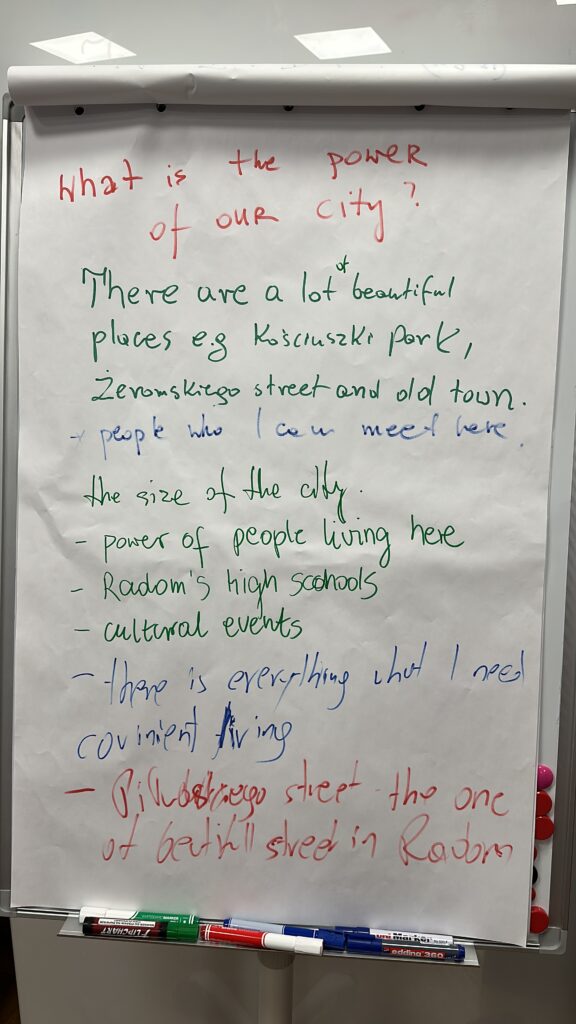 What is the power
of our city?
There are a lot of beautiful
places e.g Kościuszki park,
Żeromskiego street and old town.
- people who I can meet here.
the size of the city.
- power of people living here
- Radom's high scohools
- cultural events
- there is everything what I need
covinient living
- street the one
of streed in Radom
FLIPCHART
Marker
edding 360